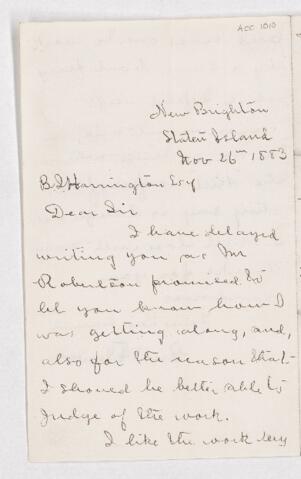 ACC 1010
New Brighton
Staten Island
Nov 26th 1883
B J Harrington Esq
Dear Sir
I have delayed
writing you as Mr
Robertson promised to
let you know how I
was getting along, and,
also for the reason that
I should be better able to
judge of the work.
I like the work very